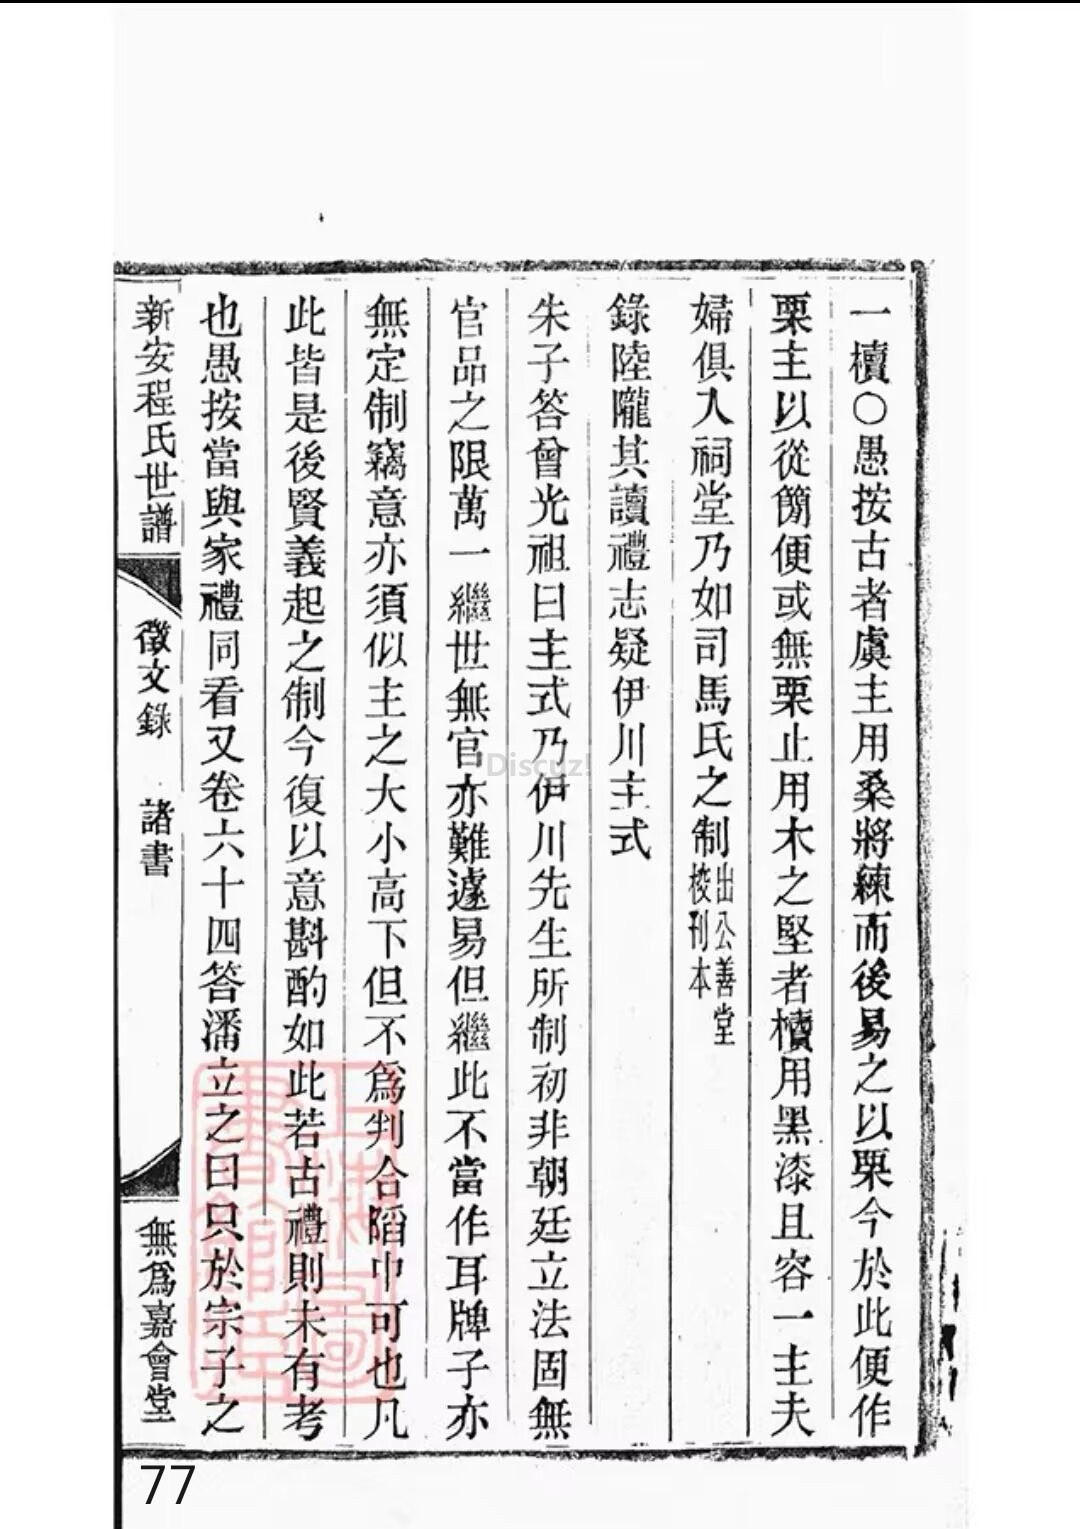 一櫝○愚按古者虞主用桑將練而後易之以栗今於此便作
栗主以從簡便或無栗止用木之堅者櫝用黑漆且容一主夫
婦俱入祠堂乃如司馬氏之制出公善堂
校刊本
錄陸隴其讀禮志疑伊川主式
朱子答曾光祖曰主式乃伊川先生所制初非朝廷立法固無
官品之限萬一繼世無官亦難遽易但繼此不當作耳牌子亦
無定制竊意亦須似主之大小高下但不爲判合陷中可也凡
此皆是後賢義起之制今復以意斟酌如此若古禮則未有考
也愚按當與家禮同看又卷六十四答潘立之曰只於宗子之
新安程氏世譜
徵文錄 諸書
無爲嘉會堂
Discuz!
77